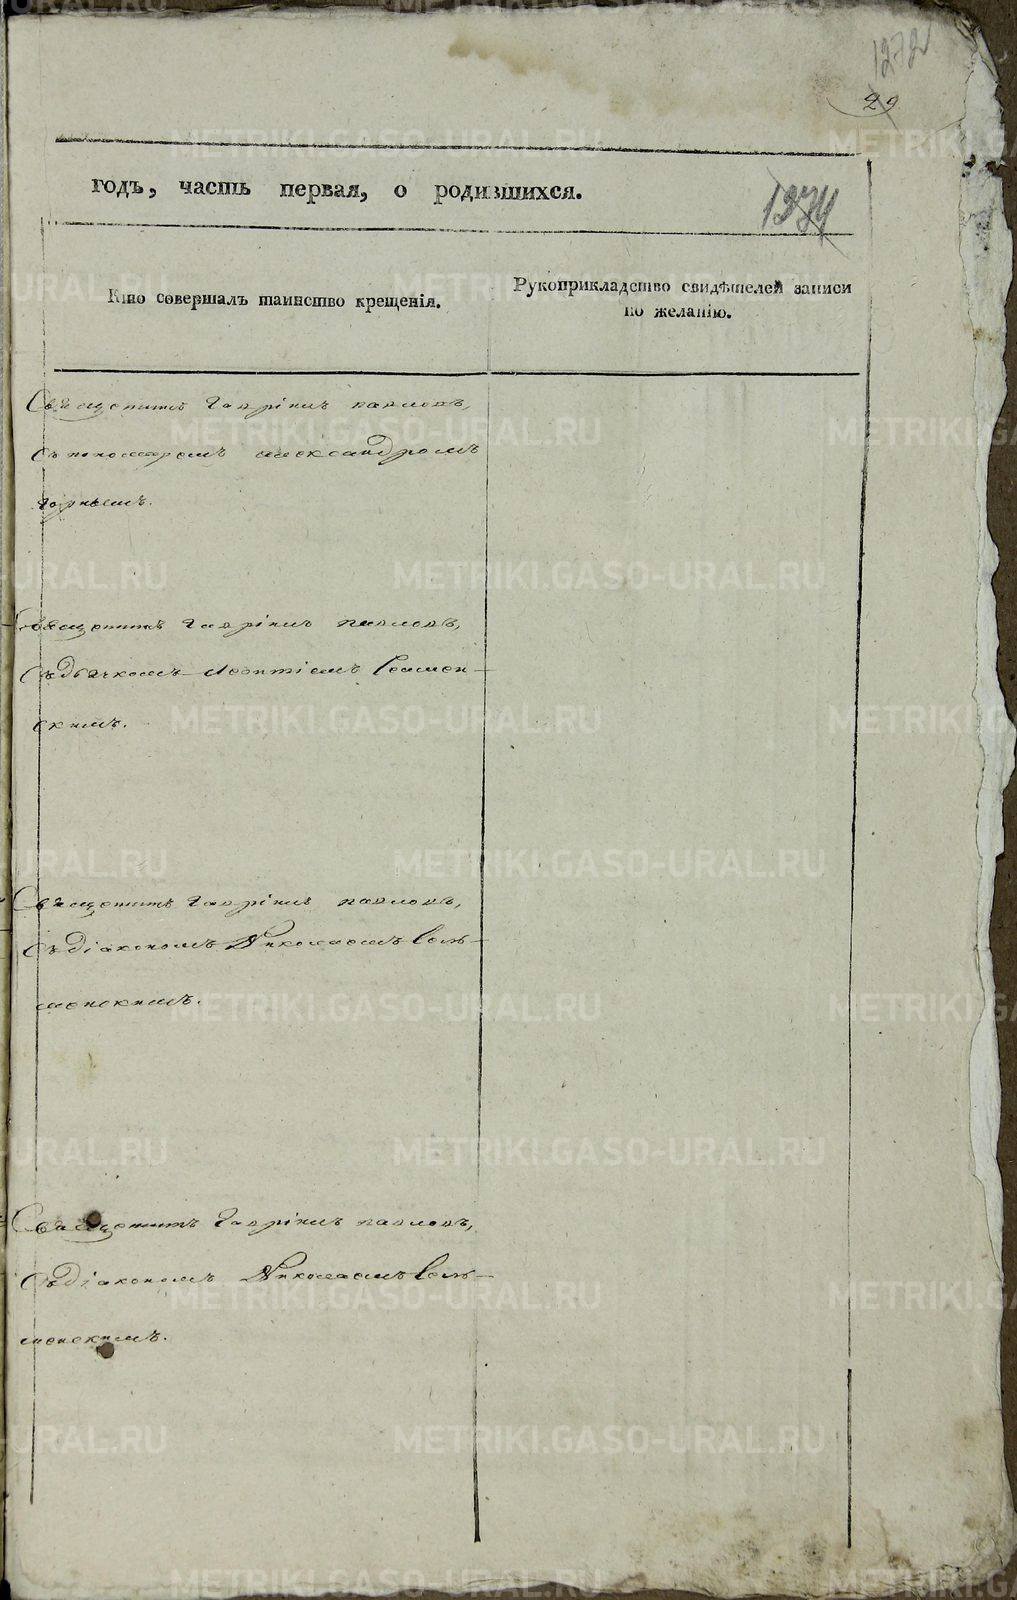 1272
29
годъ, часть первая, о родившихся.
1274
Кто совершалъ таинство крещенія.
Рукоприкладство свидѣтелей записи
по желанію.
Священникъ Гавріилъ Павловъ,
съ пономаремъ Александромъ
Горнымъ.
Священникъ Гавріилъ Павловъ,
съ дьячкомъ Леонтіемъ
скимъ.
Священникъ Гавріилъ Павловъ,
съ діакономъ Николаемъ
менскимъ.
Священникъ Гавріилъ Павловъ,
съ діакономъ Николаемъ
менскимъ.
METRIKI.GASO-URAL.RU